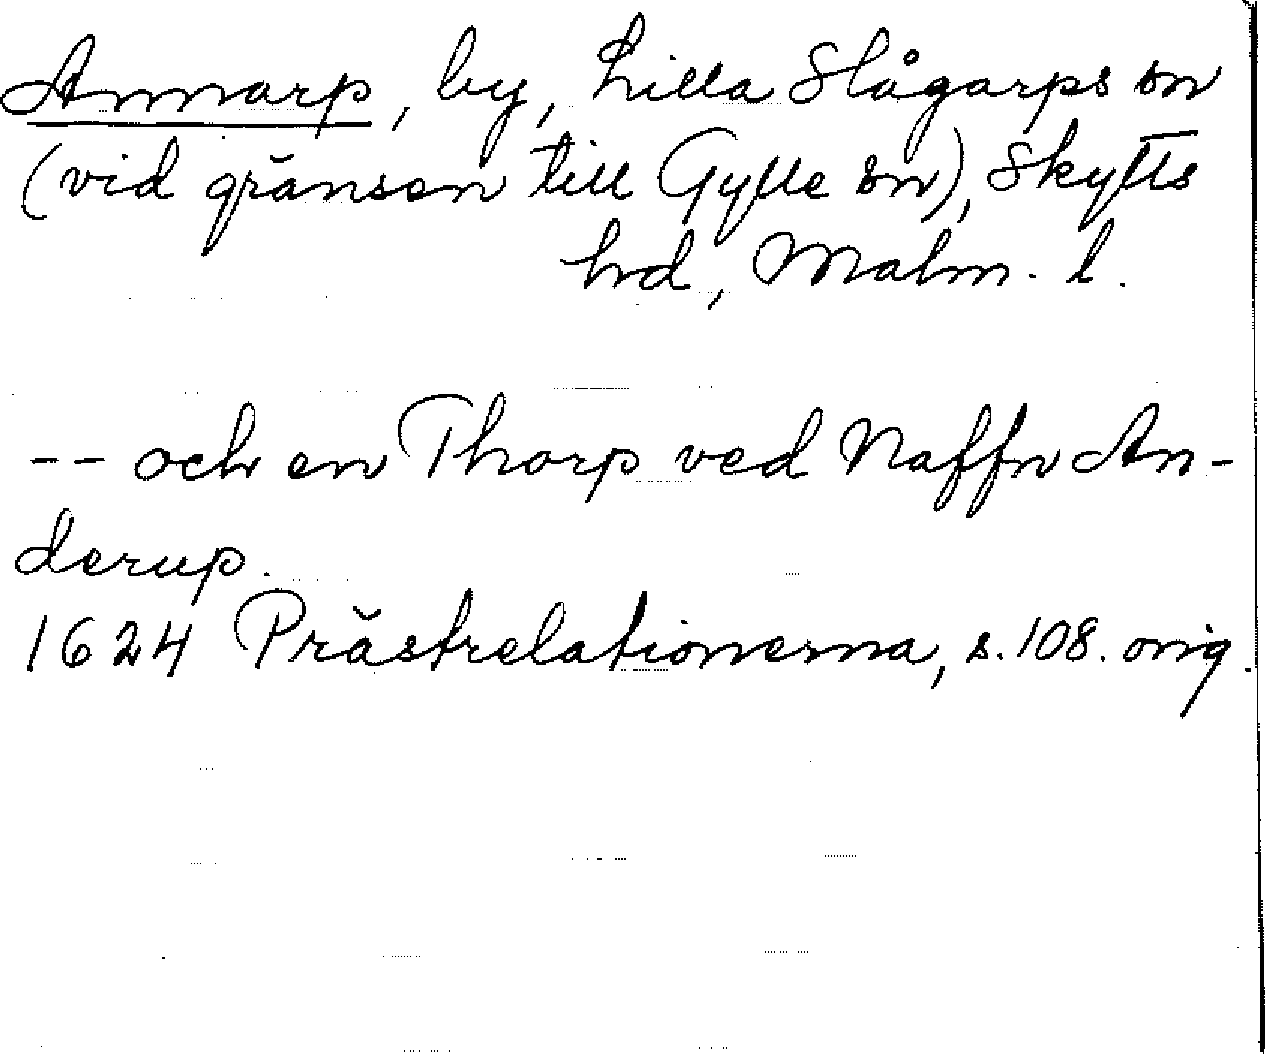 Annarp, by, Lilla Slågarps sn
(vid gränsen till Gylle sn), Skytts
hd, Malm. l.
-- och en Thorp ved Naffn An-
derup.
1624 Prästrelationerna, s. 108. orig.